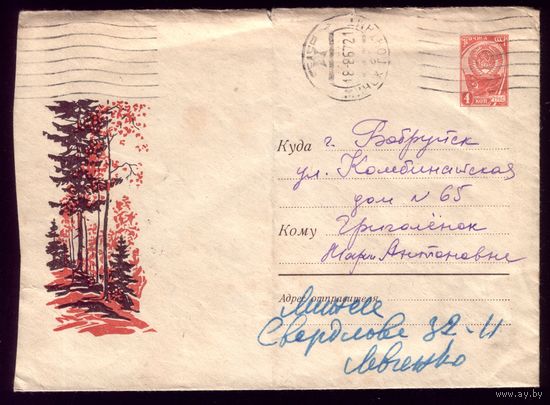 ПОЧТА СССР
4 КОП
Куда г. Бобруйск
ул. Комбинатская
дом N 65
Кому Григолёнок
Марии Антоновне
Адрес отправителя
Минск
Свердлова 32-11
Левченко
www.ay.by